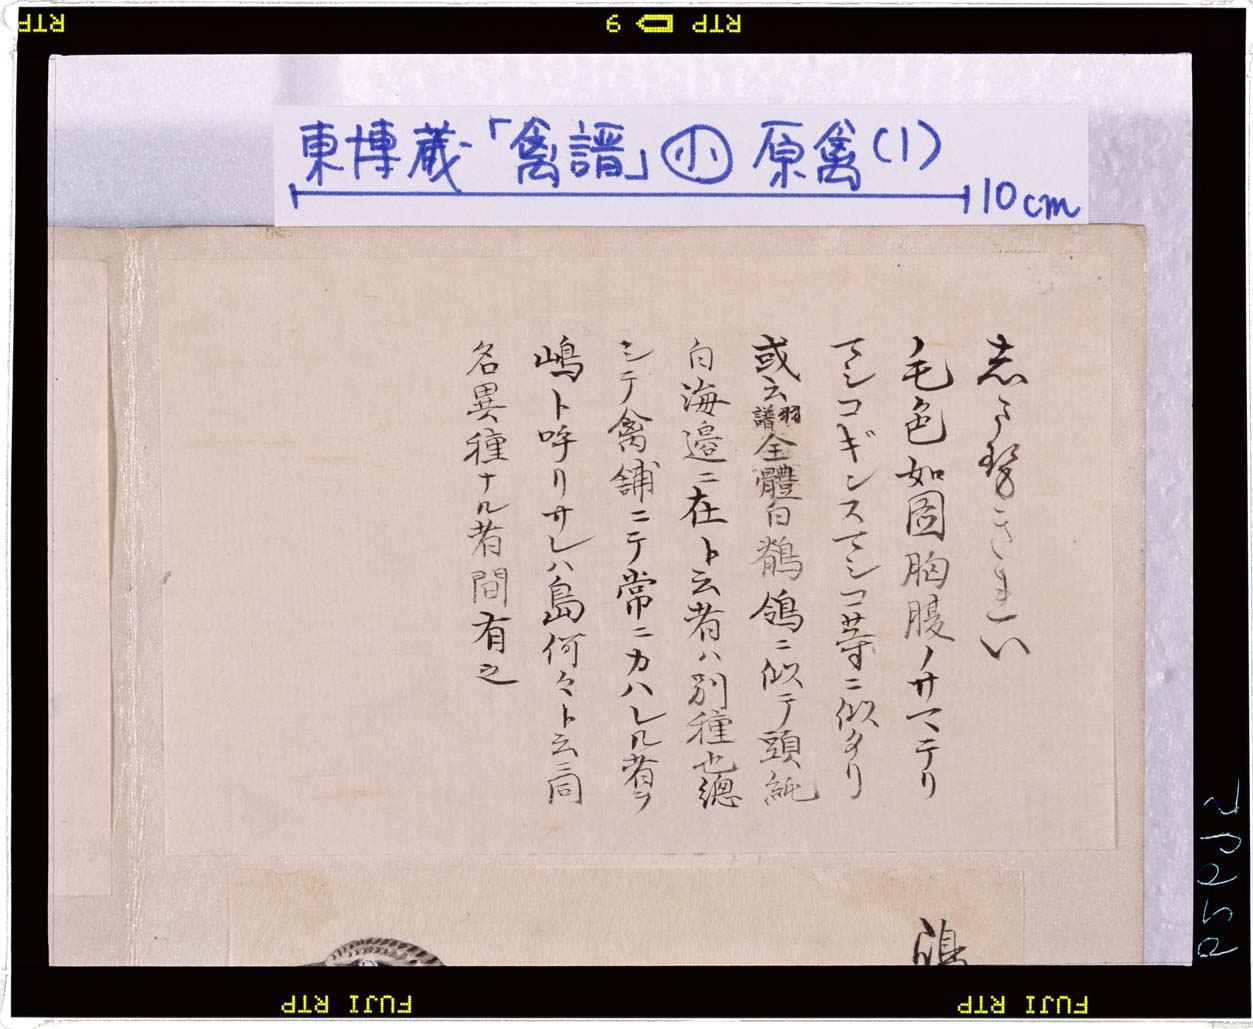 RTP
6 RTP
東博蔵「禽譜」小 原禽(1)
10cm
志ませきれい
毛色如図胸腹ノサマテリ
マシコギンスマシコ等ニ似タリ
或云羽譜全體白鶺鴒ニ似テ頭純
白海邉ニ在ト云者ハ別種也總
シテ禽舗ニテ常ニカハレル者ヲ
嶋ト呼リサレハ島何々ト云ニ同
名異種ナル者間有之
FUJI RTP
FUJI RTP